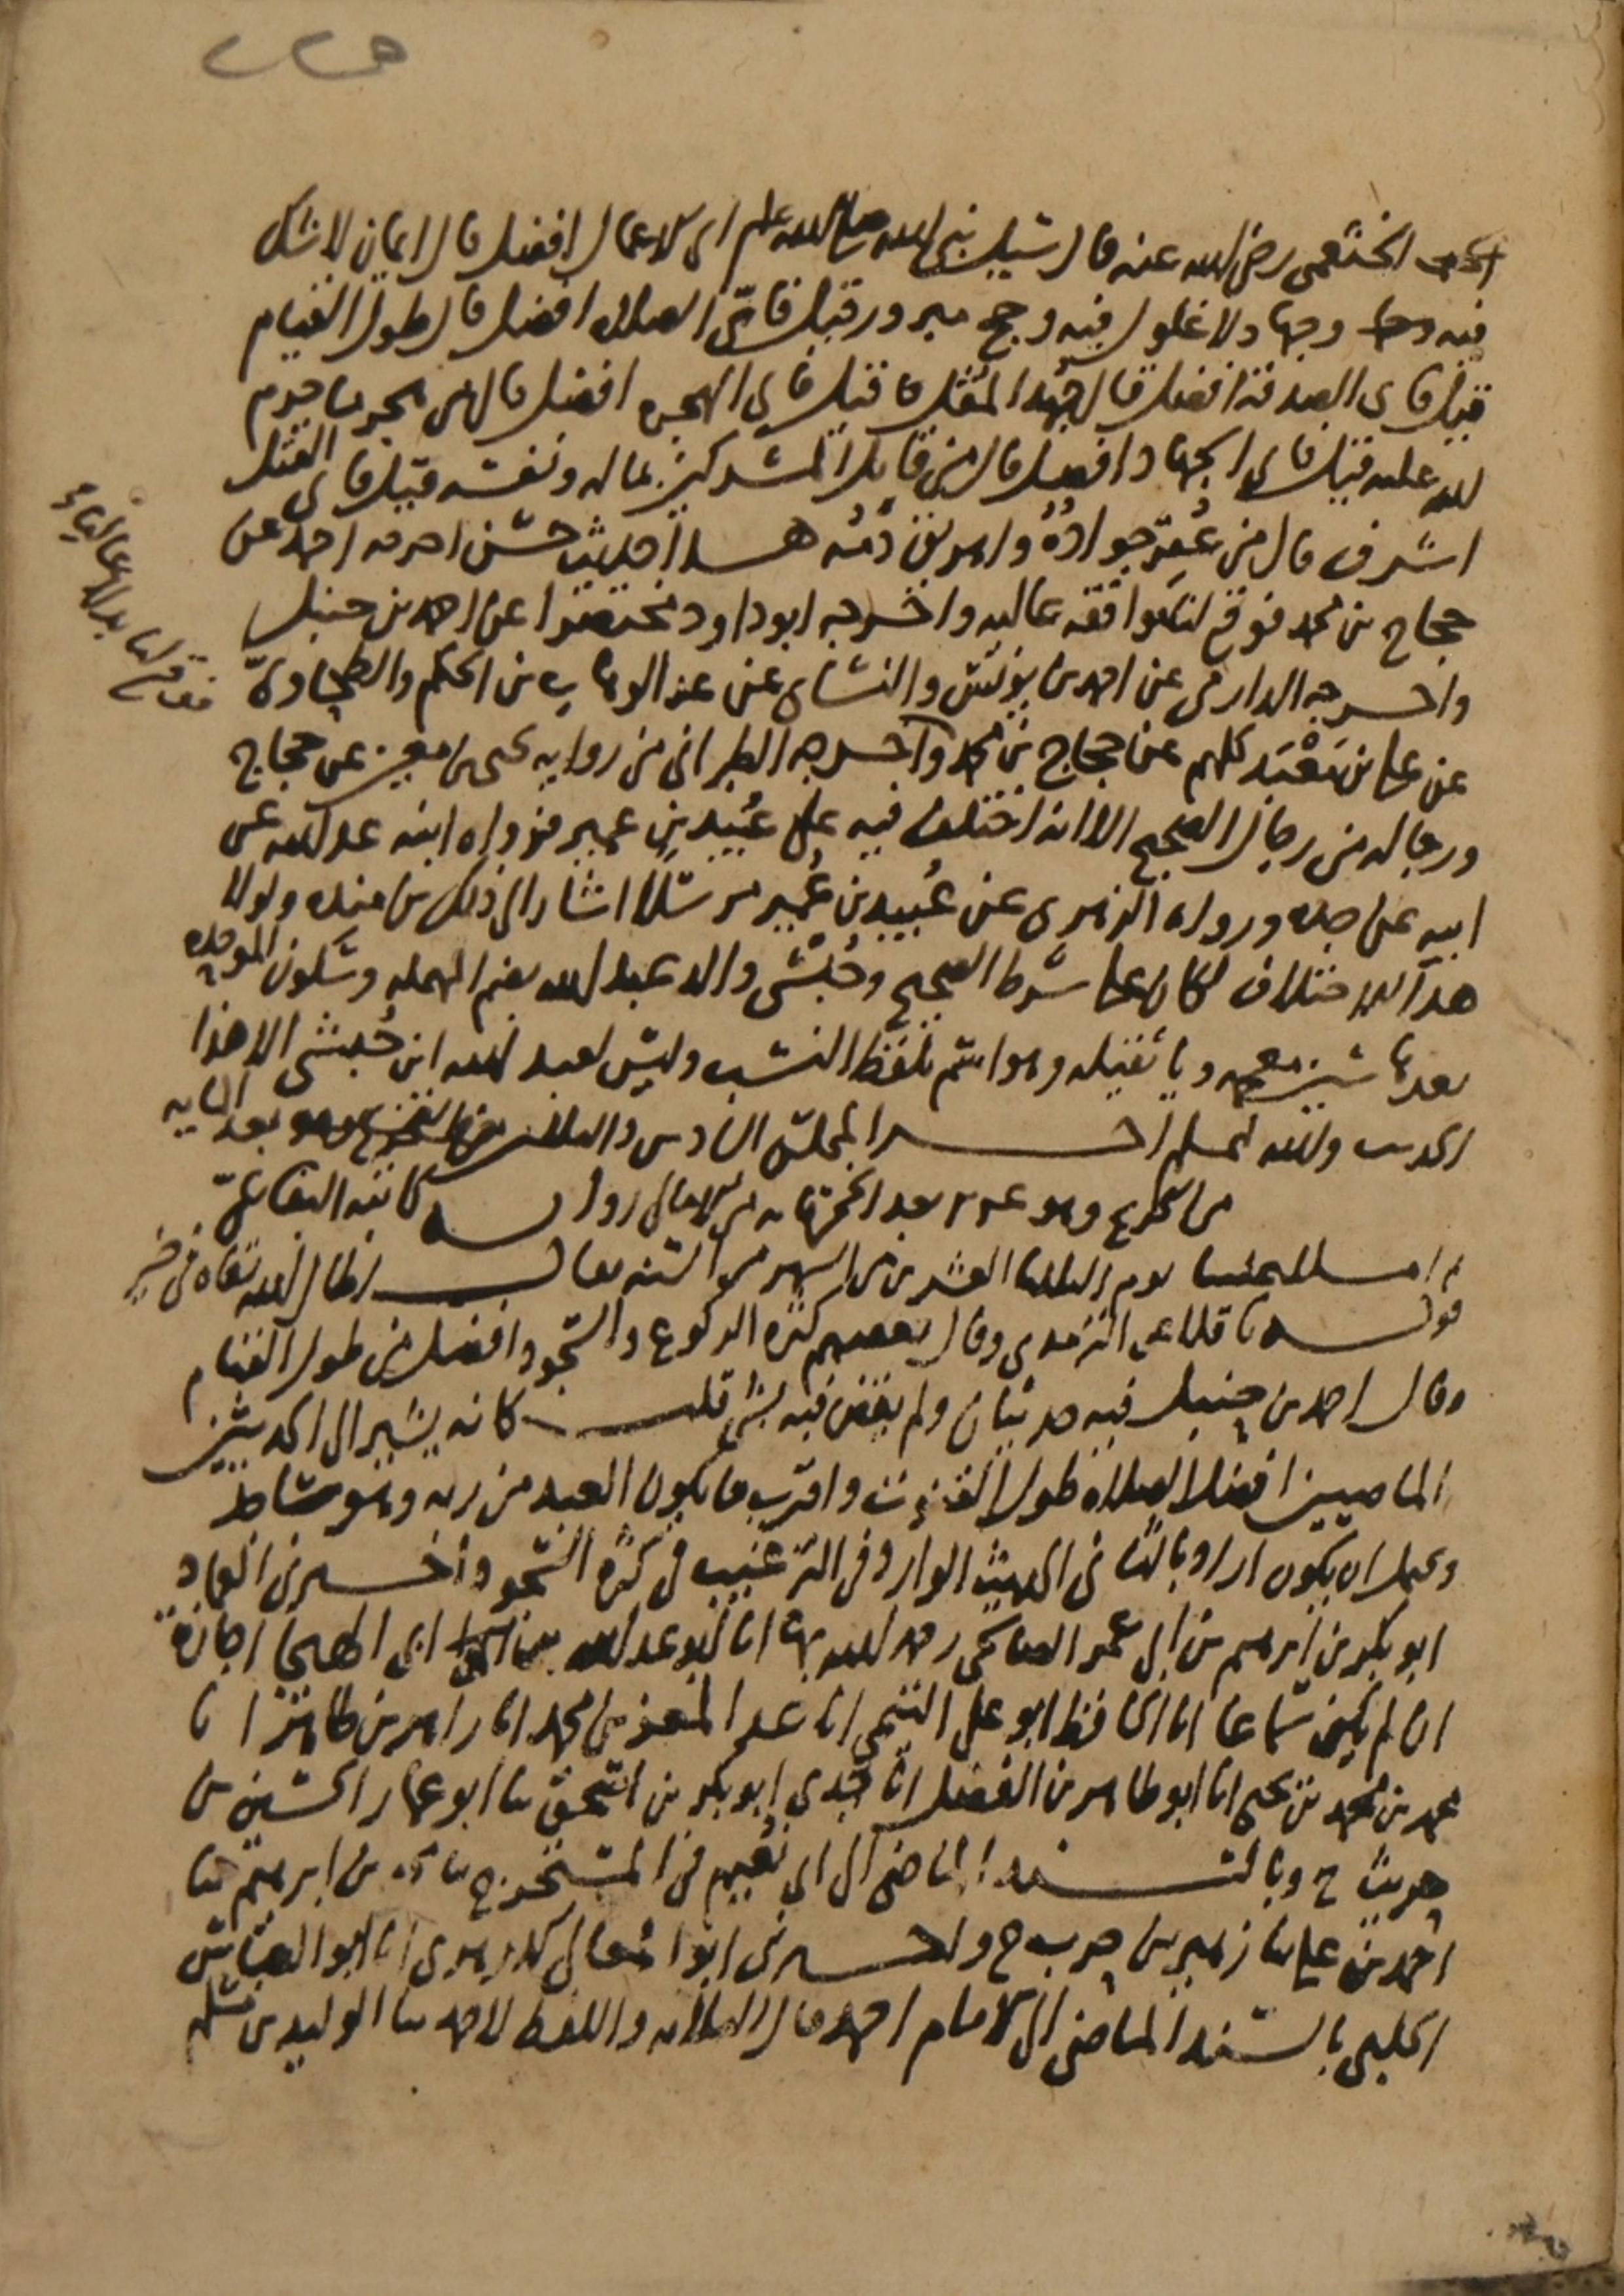 الخثعمي رضي الله عنه قال سئل نبي الله صلى الله عليه وسلم اي الاعمال افضل قال ايمان لا شك
فيه وجهاد لا غلول فيه وحج مبرور قيل فاي الصلاة افضل قال طول القيام
قيل فاي الصدقة افضل قال جُهد المُقل قيل فاي الهجرة افضل قال من هجر ما حرم
الله عليه قيل فاي الجهاد افضل قال من قاتل المشركين بماله ونفسه قيل فاي القتل
اشرف قال من عُقِر جوادُهُ واهريق دَمُه هذا حديث حسَن اخرجه احمد عن
حجاج بن محمد فوقع لنا موافقه عاليه واخرجه ابو داود مختصرا عن احمد بن حنبل
واخرجه الدارمي عن احمد بن يونس والنسائي عن عبد الوهاب بن الحكم والطحاوي
عن علي بن مَعْبَد كلهم عن حجاج بن محمد واخرجه الطبراني من رواية يحيى بن معين عن حجاج
ورجاله من رجال الصحيح الا انه اختلف فيه على عُبيد بن عمير فرواه ابنه عبد الله عن
ابيه عن جده ورواه الزهري عن عُبيد بن عُمير مرسَلا اشار الى ذلك بن منده ولولا
هذا الاختلاف لكان على شرط الصحيح وحُبْشي والد عبد الله بضم المهمله وسَكون الموحده
بعدها شين معجمه ويا ثقيله وهو اسم بلفظ النسَب وليس لعبد الله ابن حُبشي الا هذا
الحديث والله اعلم اخر المجلس السادس والثلاثين بعد المايه
من التخريج وهو بعد الخمسمايه من الامالي رواية كاتبه البقاعي
ثم املى علينا يوم الثلاثا العشرين من الشهر من السنه فقال اطال الله بقاه في خير
قوله ناقلا عن الترمذي وقال بعضهم كثرة الركوع والسجود افضل من طول القيام
وقال احمد بن حنبل فيه حديثان ولم يقض فيه بشي قلت كانه يشير الى الحديثين
الماضيين افضل الصلاة طول القنوت واقرب ما يكون العبد من ربه وهو ساجد
ويحتمل ان يكون اراد بالثاني الحديث الوارد في الترغيب في كثرة السجود اخبرني العماد
ابو بكر بن ابرهيم بن ابي عمر الصالحي رحمه الله بها انا ابو عبد الله ابن ابي الهيجا اجازة
ان لم يكن سَماعا انا الحافظ ابو علي التيمي انا عبد المعز بن محمد انا زاهر بن طاهر انا
محمد بن محمد بن يحيى انا ابو طاهر بن الفضل انا جَدي ابو بكر بن اسحق ثنا ابو عمار الحسين بن
حريث ح وبالسند الماضي الى ابي نُعيم في المستخرج ثنا بن ابرهيم ثنا
احمد بن علي ثنا زهير بن حرب ح واخبرني ابو المعالي الازهري انا ابو العباس
الحلبي بالسند الماضي الى الامام احمد قال الثلاثه واللفظ لاحمد ثنا الوليد بن مسلم